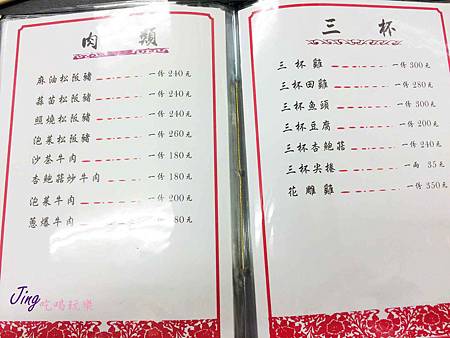 肉 類
麻油松阪豬 一份 240元
蒜苗松阪豬 一份 240元
照燒松阪豬 一份 240元
泡菜松阪豬 一份 260元
沙茶牛肉 一份 180元
杏鮑菇炒牛肉 一份 180元
泡菜牛肉 一份 200元
蔥爆牛肉 一份 180元
三 杯
三杯雞 一份 300元
三杯田雞 一份 280元
三杯魚頭 一份 300元
三杯豆腐 一份 200元
三杯杏鮑菇 一份 240元
三杯尖捲 一兩 35元
花雕雞 一份 350元
Jing吃喝玩樂